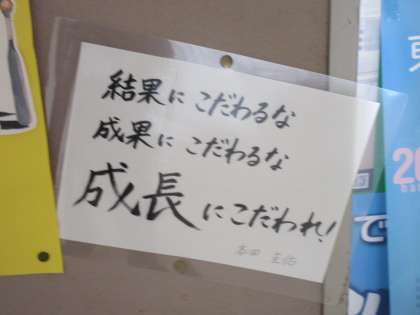 結果にこだわるな
成果にこだわるな
成長にこだわれ!
本田 圭佑
東
20
で